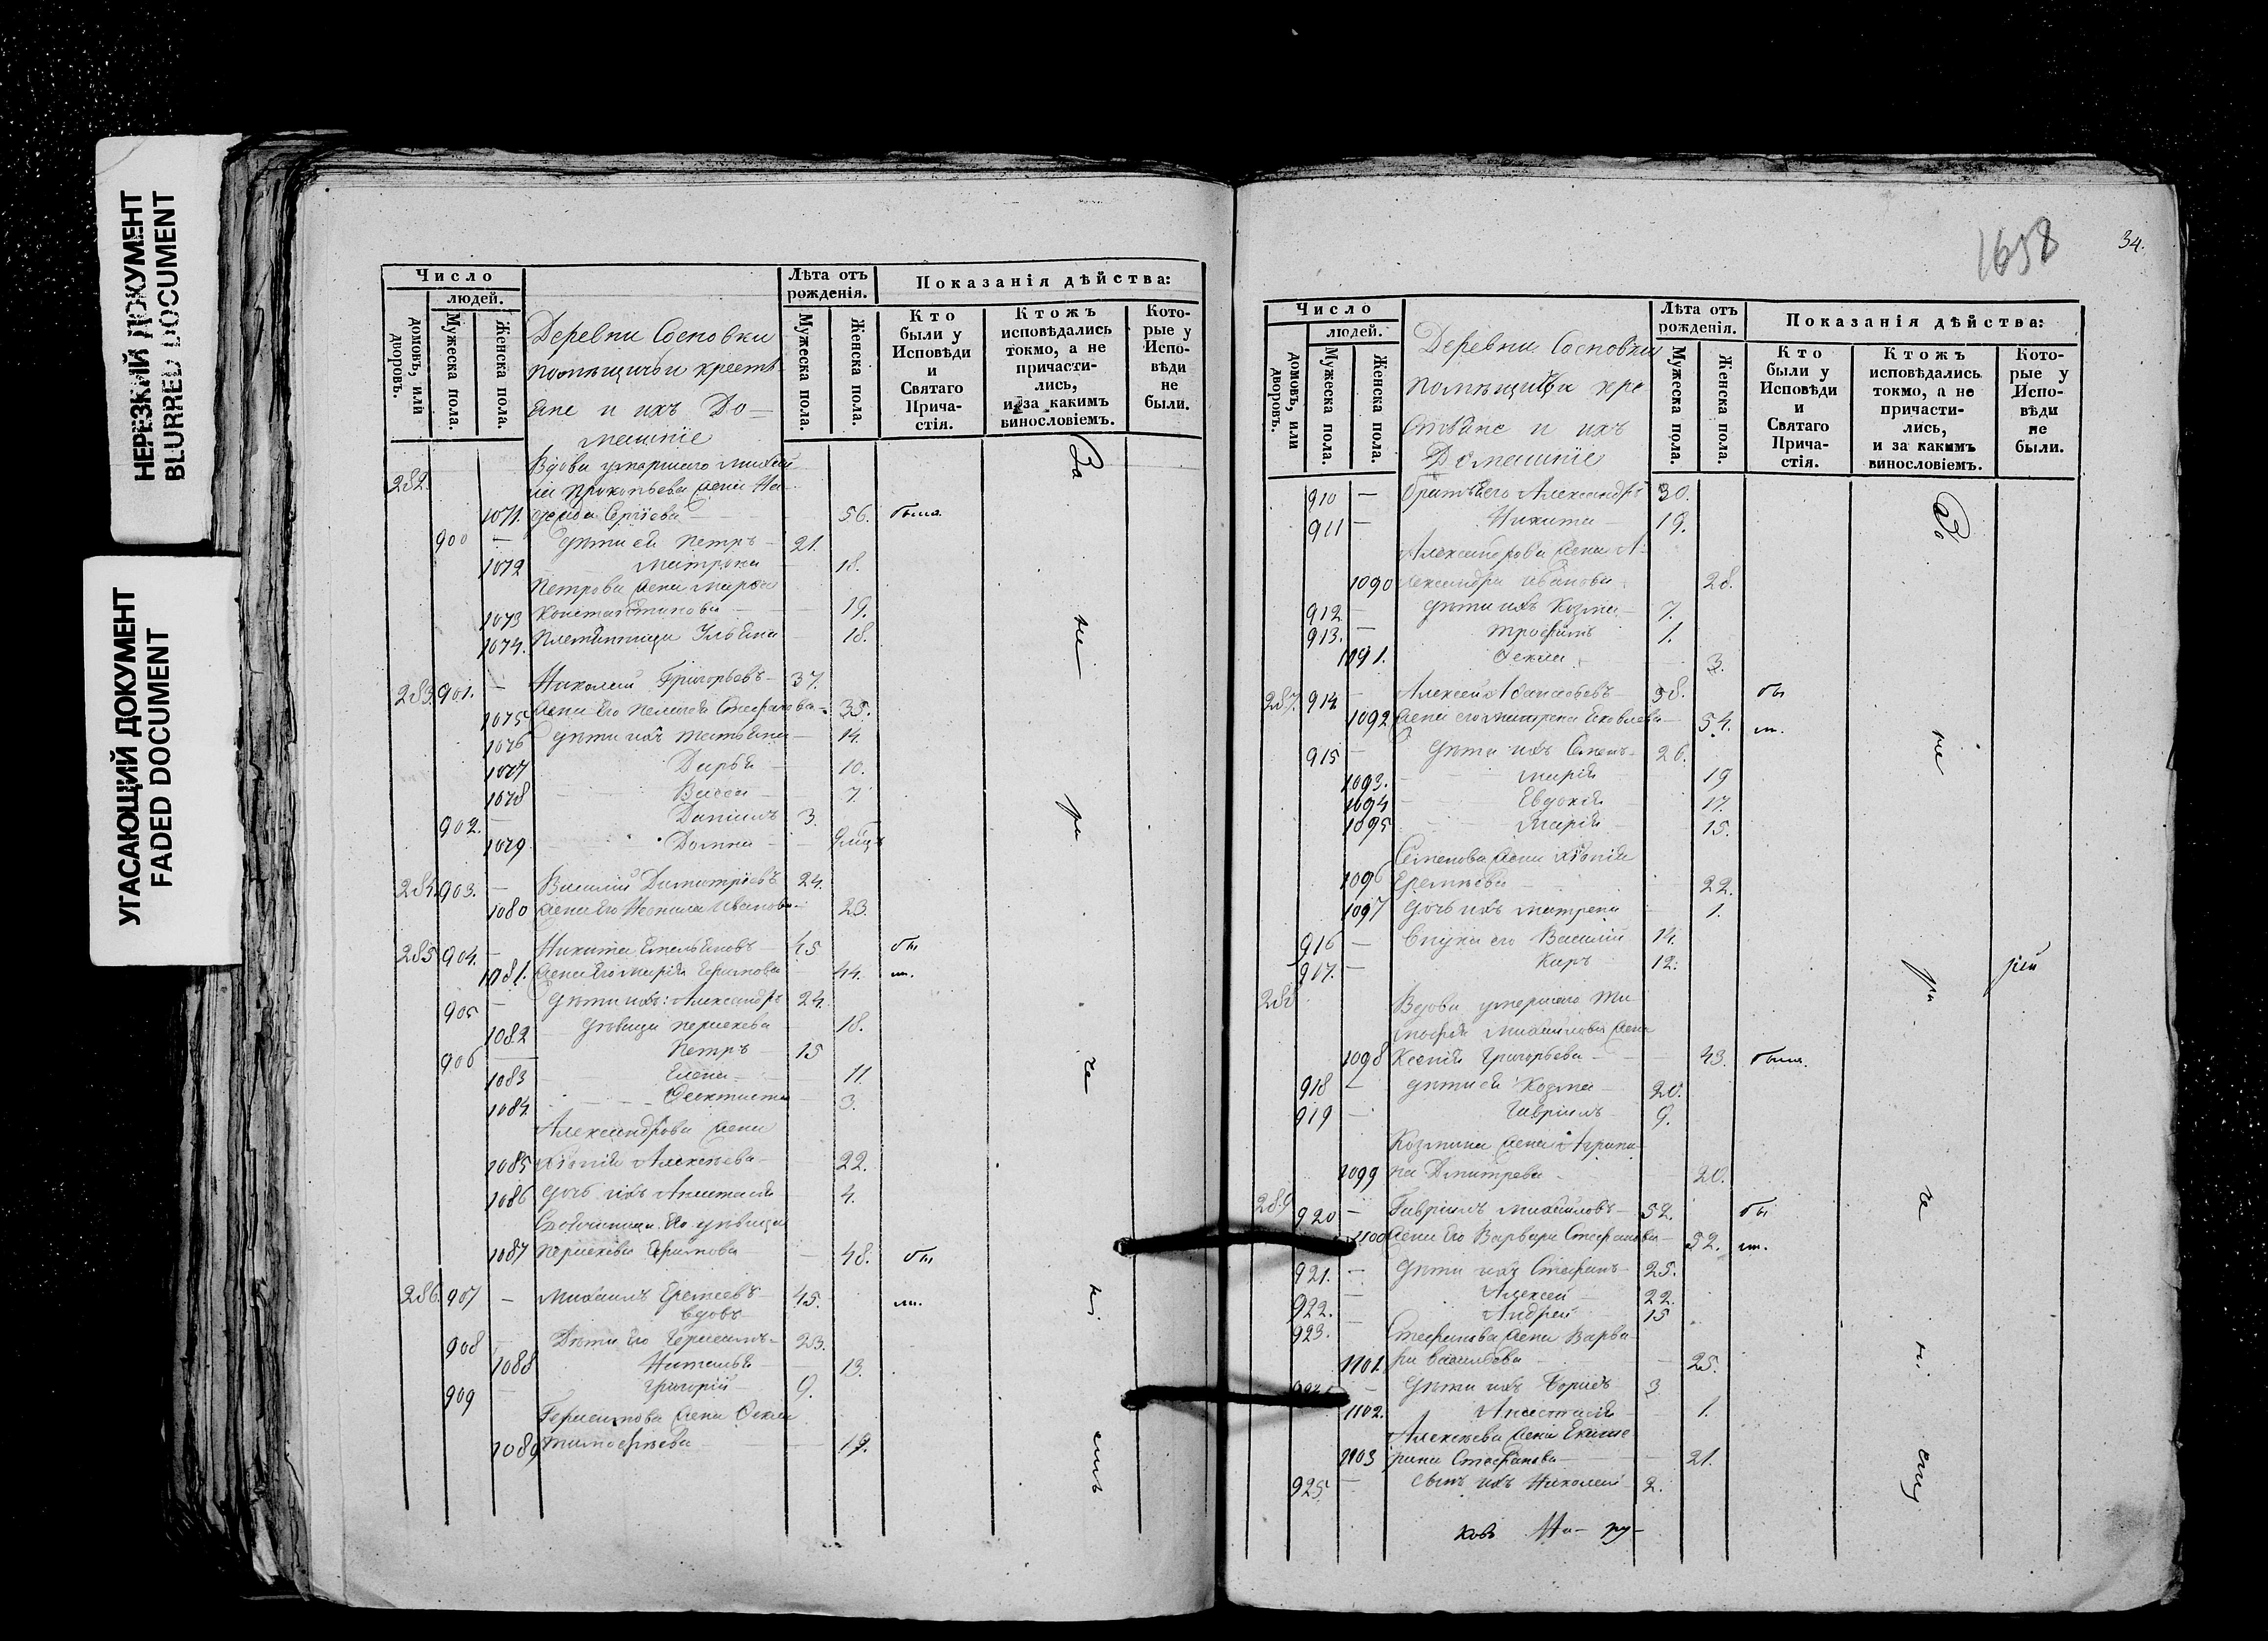 НЕРЕЗКИЙ ДОКУМЕНТ
BLURRED DOCUMENT
УГАСАЮЩИЙ ДОКУМЕНТ
FADED DOCUMENT
Число
людей.
домовъ, или дворовъ.
Мужеска пола.
Женска пола.
Деревни Сосновки
помѣщичьи кресть
яне и ихъ До=
машніе
Лѣта отъ рожденія.
Мужеска пола.
Женска пола.
Показанія дѣйства:
Кто были у Исповѣди и Святаго Причастія.
Ктожъ исповѣдались токмо, а не причастились, и за какимъ винословіемъ.
Которые у Исповѣди не были.
282. Вдова умершаго
Прокопьева жена На
1071. Сергіева 56. была
900 — дѣти ея Петръ — 21.
1072 Матрона 18.
Петрова жена Марѳа
1073 Константинова — 19.
1074. Племянница Ульяна 18.
283. 901. — Николай Григорьевъ — 37.
1075 жена его Пелагея Стефанова — 35.
1076 дѣти ихъ Татьяна — 14.
1077 Дарья — 10.
1078 Васса — 7.
902. — Даніилъ 3.
1079 Домна —
284. 903. — Василій Димитріевъ 24.
1080 жена его Неонила Иванова — 23.
285 904. — Никита Емельяновъ — 45 бы
1081. жена его Марія Ефимова 44. ли.
905 — дѣти ихъ: Александръ 24.
1082 дѣвица Параскева 18.
906 — Петръ — 15
1083 Елена — 11.
1084. Феоктиста 3.
Александрова жена
1085 Ксенія Алексѣева — 22.
1086 дочь ихъ Анастасія 4.
его дѣвица
1087 Параскева Ефимова — 48. бы
286. 907 — Михаилъ Еремеевъ — 45. ли.
вдовъ —
908 — Дѣти его Герасимъ — 23.
1088 Наталья — 13.
909 — Григорій — 9.
Герасимова жена Фекла
1089 Тимофѣева — 19.
За
не
ра
че
ні
емъ
1658
34.
Число
людей.
домовъ, или дворовъ.
Мужеска пола.
Женска пола.
Деревни Сосновки
помѣщичьи кре
стьяне и ихъ
Домашніе
Лѣта отъ рожденія.
Мужеска пола.
Женска пола.
Показанія дѣйства:
Кто были у Исповѣди и Святаго Причастія.
Ктожъ исповѣдались токмо, а не причастились, и за какимъ винословіемъ.
Которые у Исповѣди не были.
910 — братья его Александръ 30.
911 — Никита — 19.
Александрова жена А=
1090 лександра Иванова 28.
912 — дѣти ихъ Козма — 7.
913. — Трофимъ 1.
1091. Фекла 3.
287. 914 — Алексей 58. бы
1092 жена его Матрена Яковлева — 54. ли.
915 — дѣти ихъ Семенъ — 26.
1093. Марія 19
1094 Евдокія 17.
1095 Марія 15.
Семенова жена Ксенія
1096 Еремѣева — 22.
1097 дочь ихъ Матрена 1.
916 — внуки его Василій 14.
917. — Киръ 12.
288 Вдова умершаго Ти
мофея Михайлова жена
1098 Ксенія Григорьева — 43. была.
918 — дѣти ея Козма — 20.
919 — Гавріилъ — 9.
Козмина жена Агрипи
1099 на Дмитрева — 20.
289 920 — Гавріилъ Михайловъ — 52. бы
1100 жена его Варвара Стефанова — 52. ли.
921. — дѣти ихъ Стефанъ — 25.
922. — Алексей — 22.
923. — Андрей 15
Стефанова жена Варва
1101. ра Васильева — 25.
924 — дѣти ихъ Борисъ — 3.
1102. Анастасія — 1.
Алексѣева жена Екате
1103 рина Стефанова — 21.
925 — сынъ ихъ Николай 2.
не
ра
че
ні
ковъ Ма- ру-